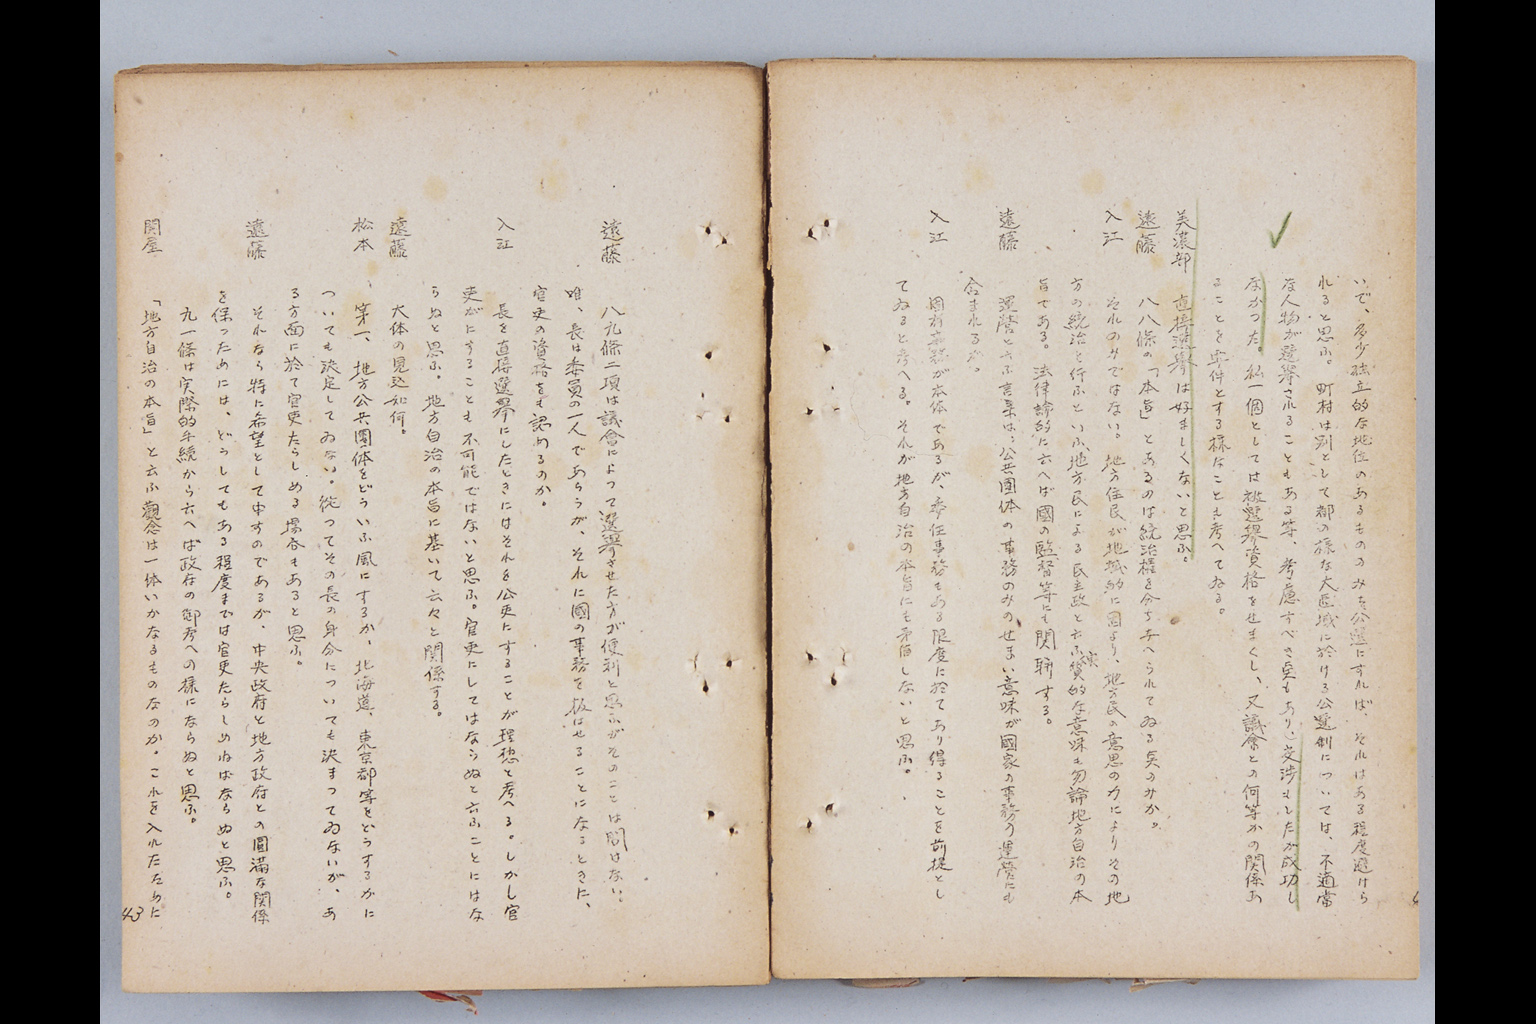 いで、多少独立的な地位のあるもののみを公選にすれば、それはある程度避けら
れると思ふ。町村は別として都の様な大区域に於ける公選制については、不適當
な人物が選挙されることもある等、考慮すべき矣もあり、交渉もしたが成功し
なかつた。私一個としては被選挙資格をせまくし、又議會との何等かの関係あ
ることを条件とする様なことも考へてゐる。
美濃部 直接選挙は好ましくないと思ふ。
遠藤 八八條の「本旨」とあるのは統治権を分ち与へられてゐる矣のみか。
入江 それのみではない。地方住民が地域的に固より、地方民の意思の力によりその地
方の統治を行ふといふ、地方民による民主政と云ふ實的な意味も勿論地方自治の本
旨である。法律論的に云へば國の監督等にも関聯する。
遠藤 運営と云ふ言葉は、公共團体の事務のみのせまい意味が國家の事務の運営にも
含まれるか。
入江 固有事務が本体であるが、委任事務もある限度に於てあり得ることを前提とし
てゐると考へる。それが地方自治の本旨にも矛盾しないと思ふ。
遠藤 八九條二項は議會によつて選挙させた方が便利と思ふがそのことは問はない。
唯、長は委員の一人であらうが、それに國の事務を扱はせることになるときに、
官吏の資格をも認めるのか。
入江 長を直接選挙にしたときにはそれを公吏にすることが理想と考へる。しかし官
吏がにすることも不可能ではないと思ふ。官吏にしてはならぬと云ふことにはな
らぬと思ふ。地方自治の本旨に基いて云々と関係する。
遠藤 大体の見込如何。
松本 第一、地方公共團体をどういふ風にするか、北海道、東京都等をどうするかに
ついても決定してゐない。従つてその長の身分についても決まつてゐないが、あ
る方面に於て官吏たらしめる場合もあると思ふ。
遠藤 それなら特に希望として申すのであるが、中央政府と地方政府との圓滿な関係
を保つためには、どうしてもある程度までは官吏たらしめねばならぬと思ふ。
九一條は実際的手続から云へば政府の御考への様にならぬと思ふ。
関屋 「地方自治の本旨」と云ふ觀念は一体いかなるものなのか。これを入れたために
43